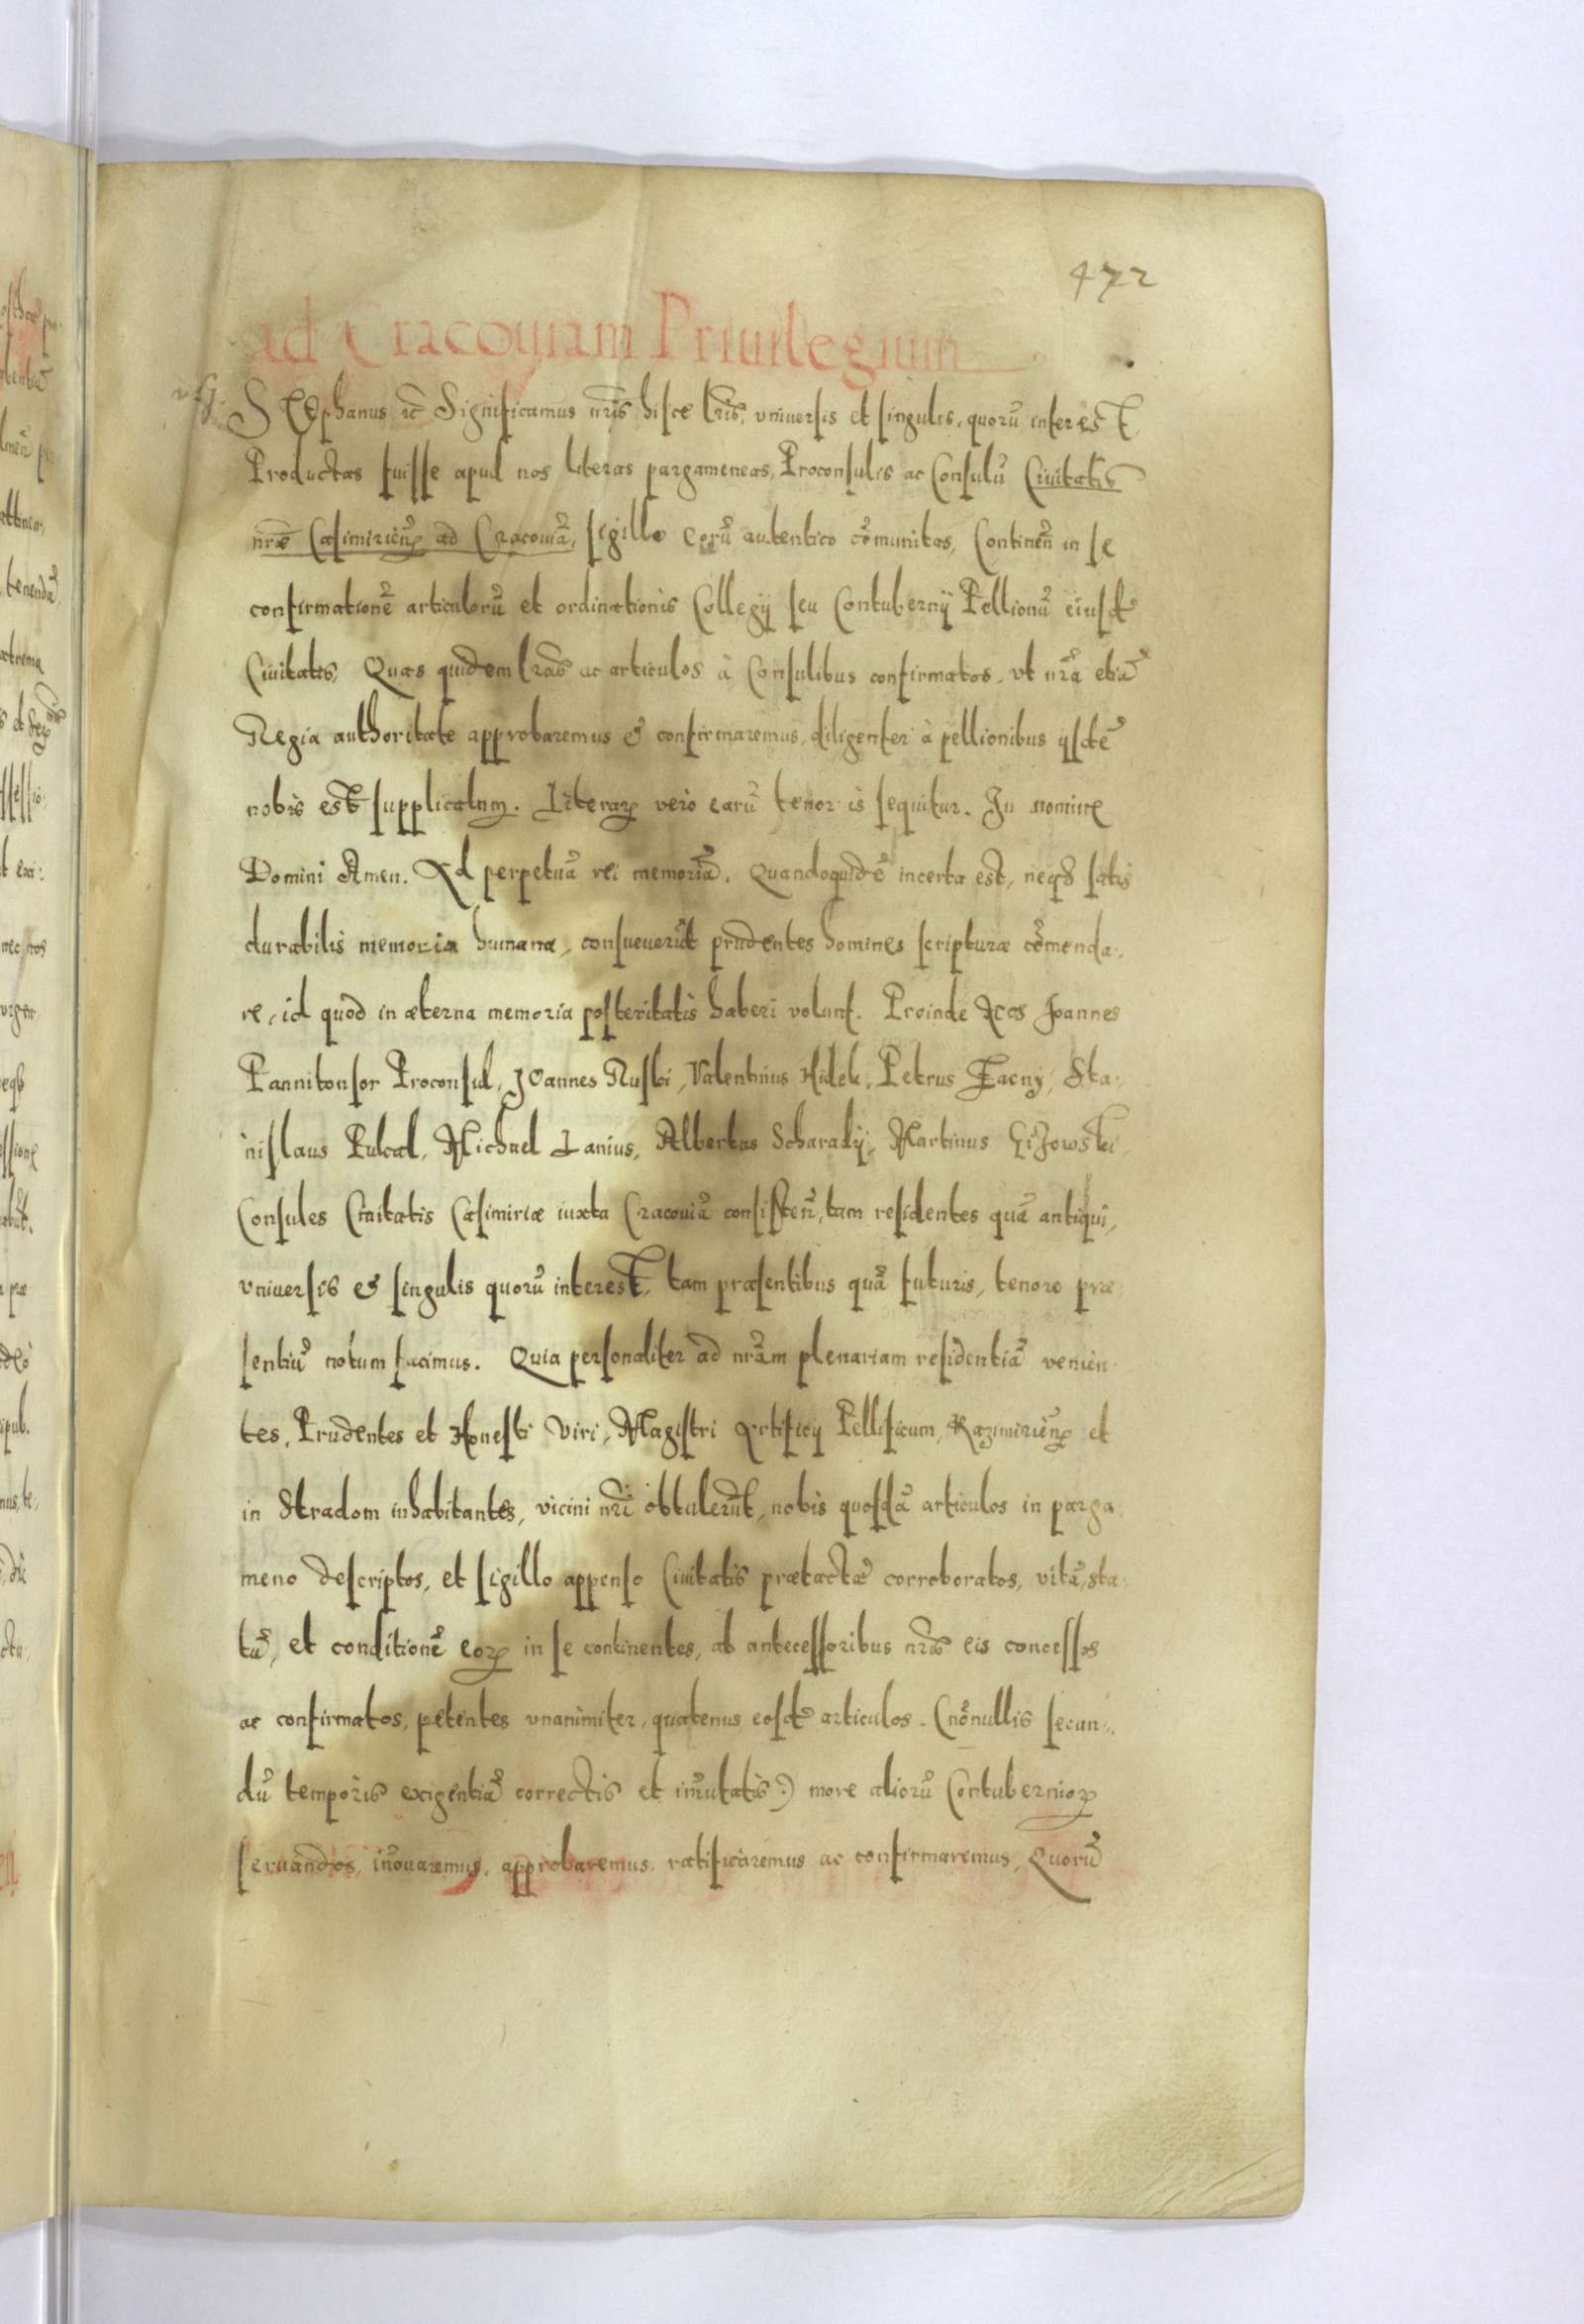 472
ad Cracouiam Priuilegium
STEphanus ꝛc̃ Significamus nr̃is hisce lr̃is, vniuersis et singulis, quorũ interest
Productas fuisse apud nos literas pargameneas, Proconsulis ac Consulũ Ciuitatis
nr̃æ Casimirieñ ad Cracouiã, sigillo eorũ autentico cõmunitas, Contineñ in se
confirmationẽ articulorũ et ordinationis Collegÿ seu Contubernÿ Pellionũ eiusd̃
Ciuitatis, Quas quidem lr̃as ac articulos à Consulibus confirmatos, vt nr̃a etiã
Regia authoritate approbaremus & confirmaremus, diligenter à pellionibus ÿsdẽ
nobis est supplicatum. Literaꝝ vero earũ tenor is sequitur. In nomine
Domini Amen. Ad perpetuã rei memoriã. Quandoquidẽ incerta est, neqꝫ satis
durabilis memoria humana, consueuerũt prudentes homines scripturæ cõmenda-
re, id quod in æterna memoria posteritatis haberi volunt. Proinde Nos Joannes
Pannitonsor Proconsul, JOannes Ruski, Valentinus Hidek, Petrus Facnÿ, Sta-
nislaus Pulcal, Michael Lanius, Albertus Scharalÿ, Martinus GiZowski,
Consules Ciuitatis Casimiriæ iuxta Cracouiã consisteñ, tam residentes quã antiqui,
vniuersis & singulis quorũ interest, tam præsentibus quã futuris, tenore præ
sentiũ notum facimus. Quia personaliter ad nr̃am plenariam residentiã venien-
tes, Prudentes et Honesti Viri, Magistri Artificÿ Pellificum, Kazimirieñ et
in Stradom inhabitantes, vicini nr̃i obtulerũt, nobis quosdã articulos in parga-
meno descriptos, et sigillo appenso Ciuitatis prætactæ corroboratos, vitã, sta-
tũ, et conditionẽ eoꝝ in se continentes, ab antecessoribus nr̃is eis concessos
ac confirmatos, petentes vnanimiter, quatenus eosd̃ articulos (nõnullis secun-
dũ temporis exigentiã correctis et im̃utatis) more aliorũ Contubernioꝝ
seruandos, iñouaremus, approbaremus, ratificaremus ac confirmaremus, Quorũ